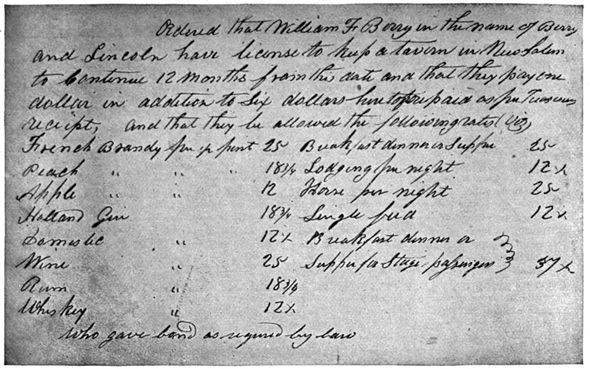 Ordered that William F Berry in the name of Berry
and Lincoln have license to keep a tavern in New Salem
to continue 12 months from this date and that they pay one
dollar in addition to Six dollars heretofore paid as per Treasurers
receipt, and that they be allowed the following rates (viz)
French Brandy per ½ pint 25 Breakfast dinner or Supper 25
Peach " " " 18¾ Lodging per night 12½
Apple " " 12 Horse per night 25
Holland Gin " 18¾ Single feed 12½
Domestic " 12½ Breakfast dinner or
Wine " 25 Supper for Stage passengers 37½
Rum " 18¾
Whiskey " 12½
Who gave bond as required by law